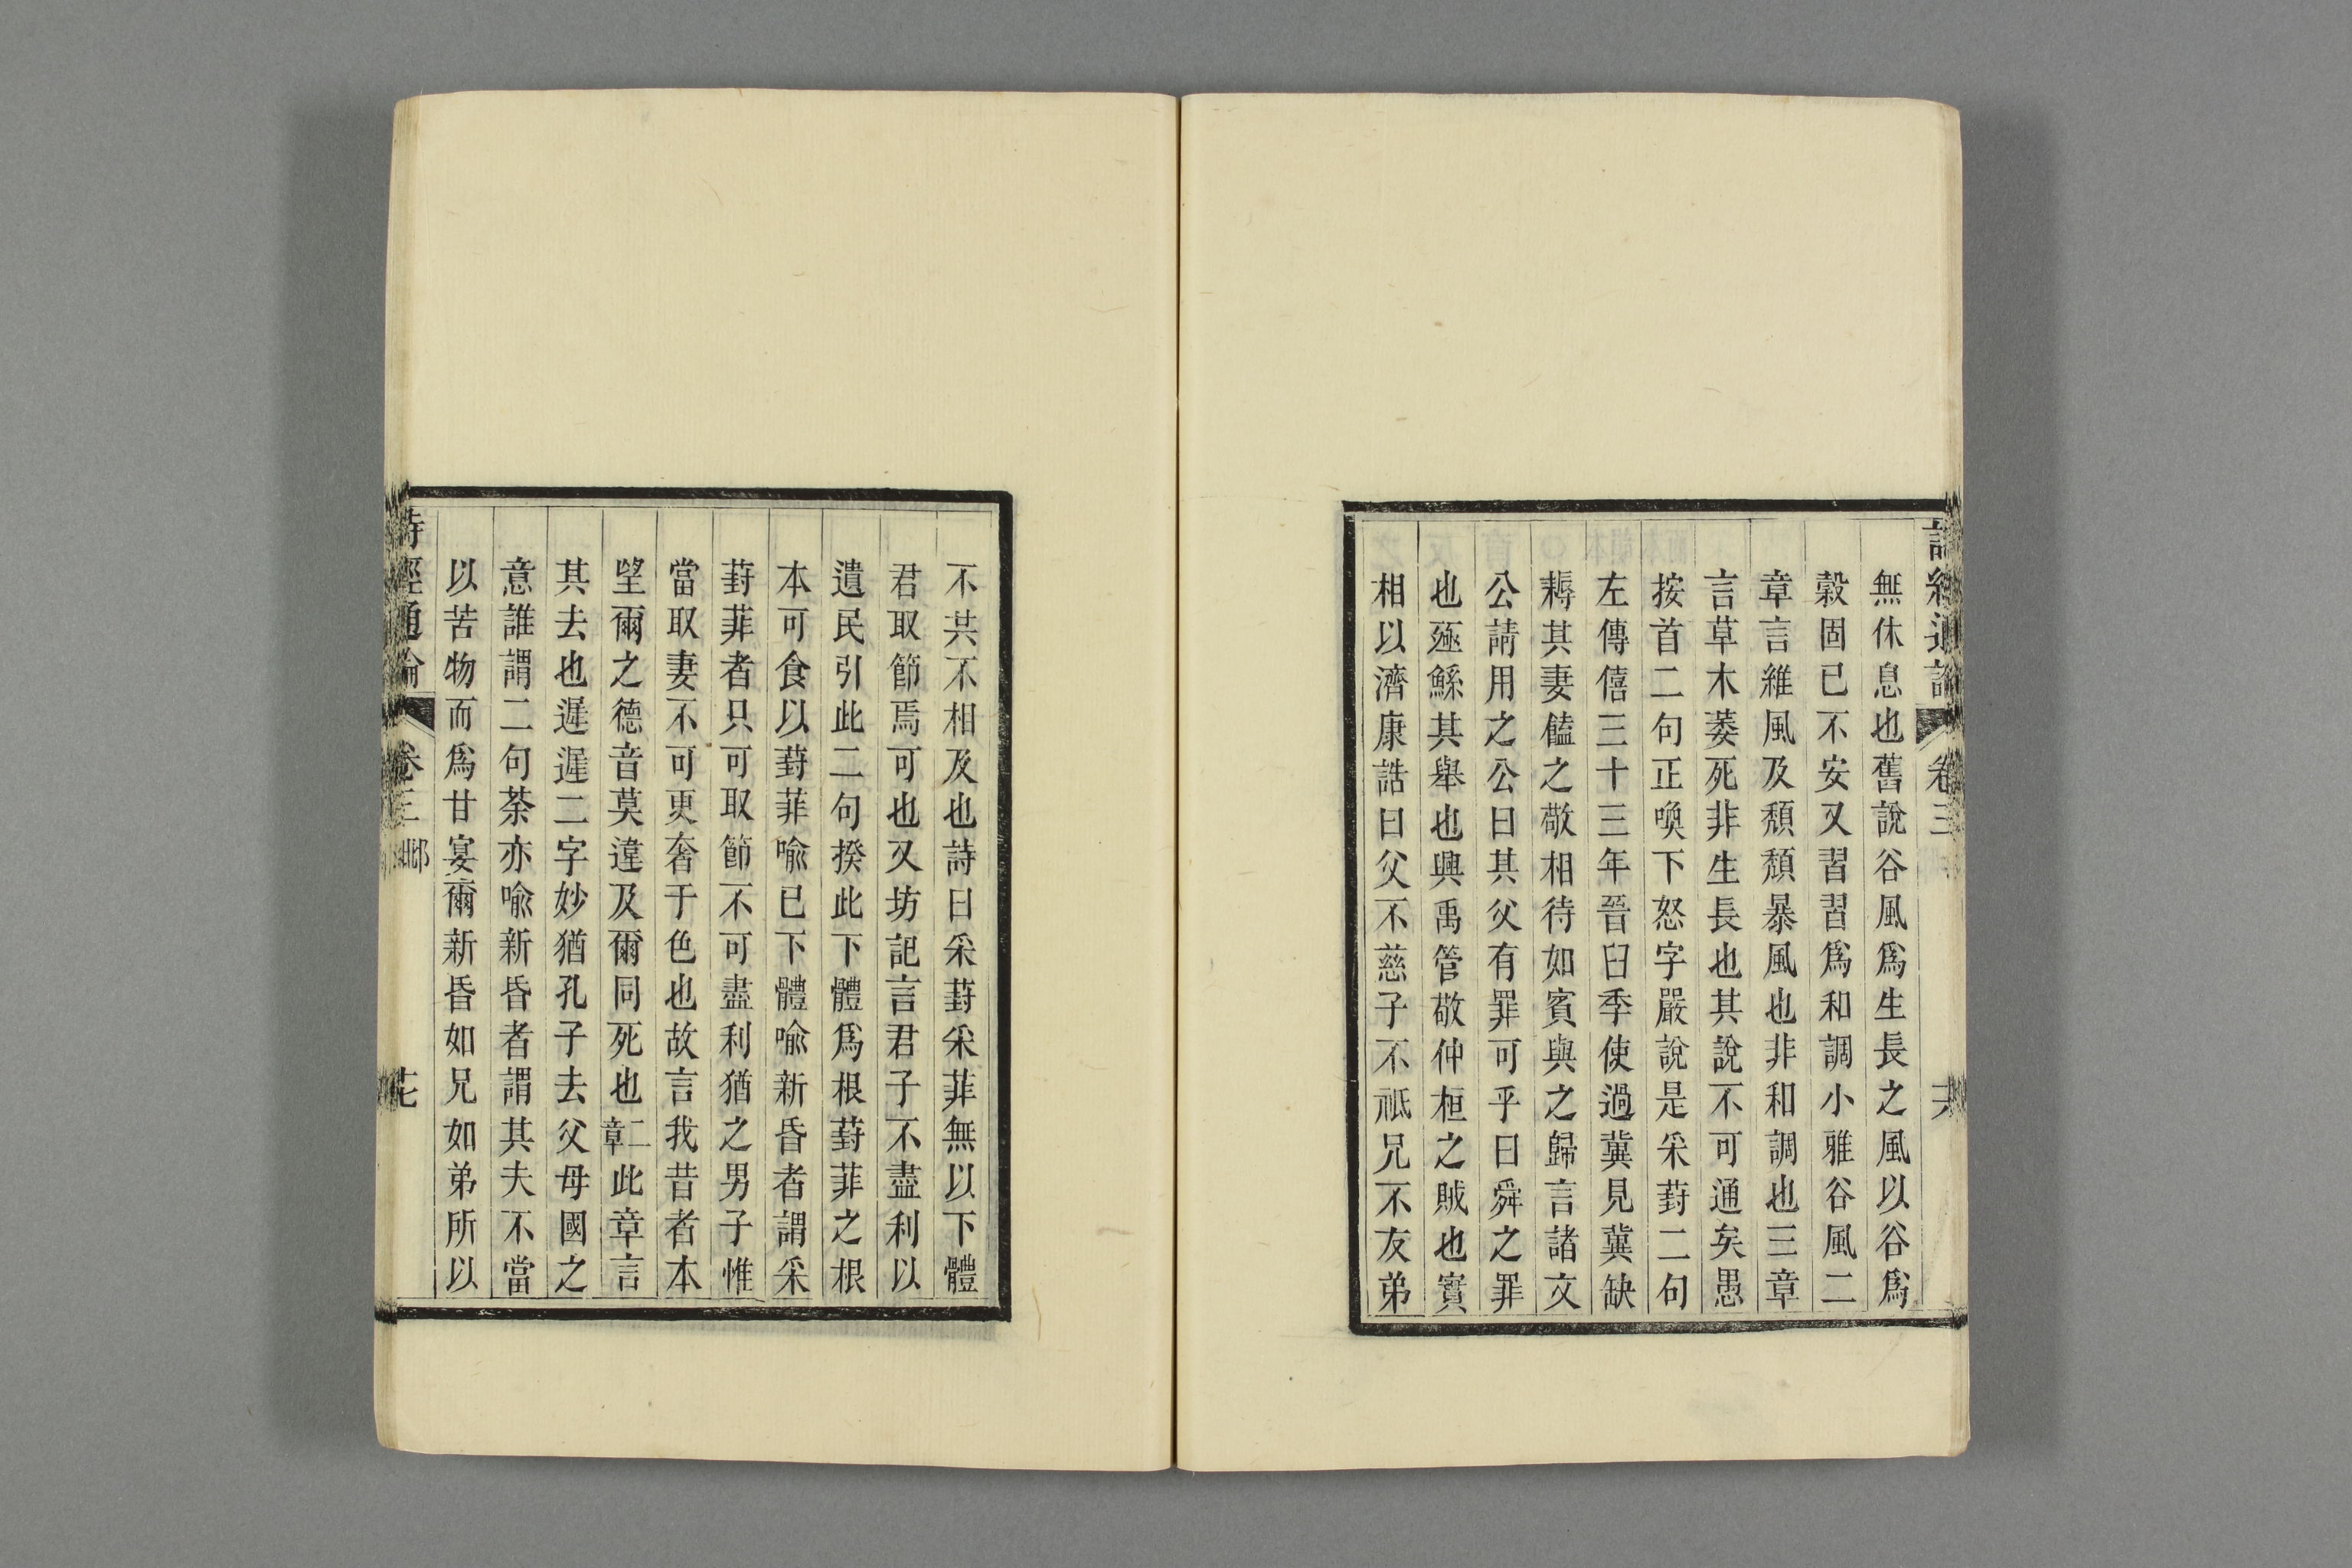 無休息也舊說谷風爲生長之風以谷爲
穀固已不安又習習爲和調小雅谷風二
章言維風及頹頹暴風也非和調也三章
言草木萎死非生長也其說不可通矣愚
按首二句正喚下怒字嚴說是采葑二句
左傳僖三十三年晉臼季使過冀見冀缺
耨其妻饁之敬相待如賓與之歸言諸文
公請用之公曰其父有罪可乎曰舜之罪
也殛鯀其舉也興禹管敬仲桓之賊也實
相以濟康誥曰父不慈子不祗兄不友弟
不共不相及也詩曰采葑采菲無以下體
君取節焉可也又坊記言君子不盡利以
遺民引此二句揆此下體爲根葑菲之根
本可食以葑菲喻已下體喻新昏者謂采
葑菲者只可取節不可盡利猶之男子惟
當取妻不可更奢于色也故言我昔者本
望爾之德音莫違及爾同死也二章此章言
其去也遲遲二字妙猶孔子去父母國之
意誰謂二句荼亦喻新昏者謂其夫不當
以苦物而爲甘宴爾新昏如兄如弟所以
詩經通論 卷三 邶